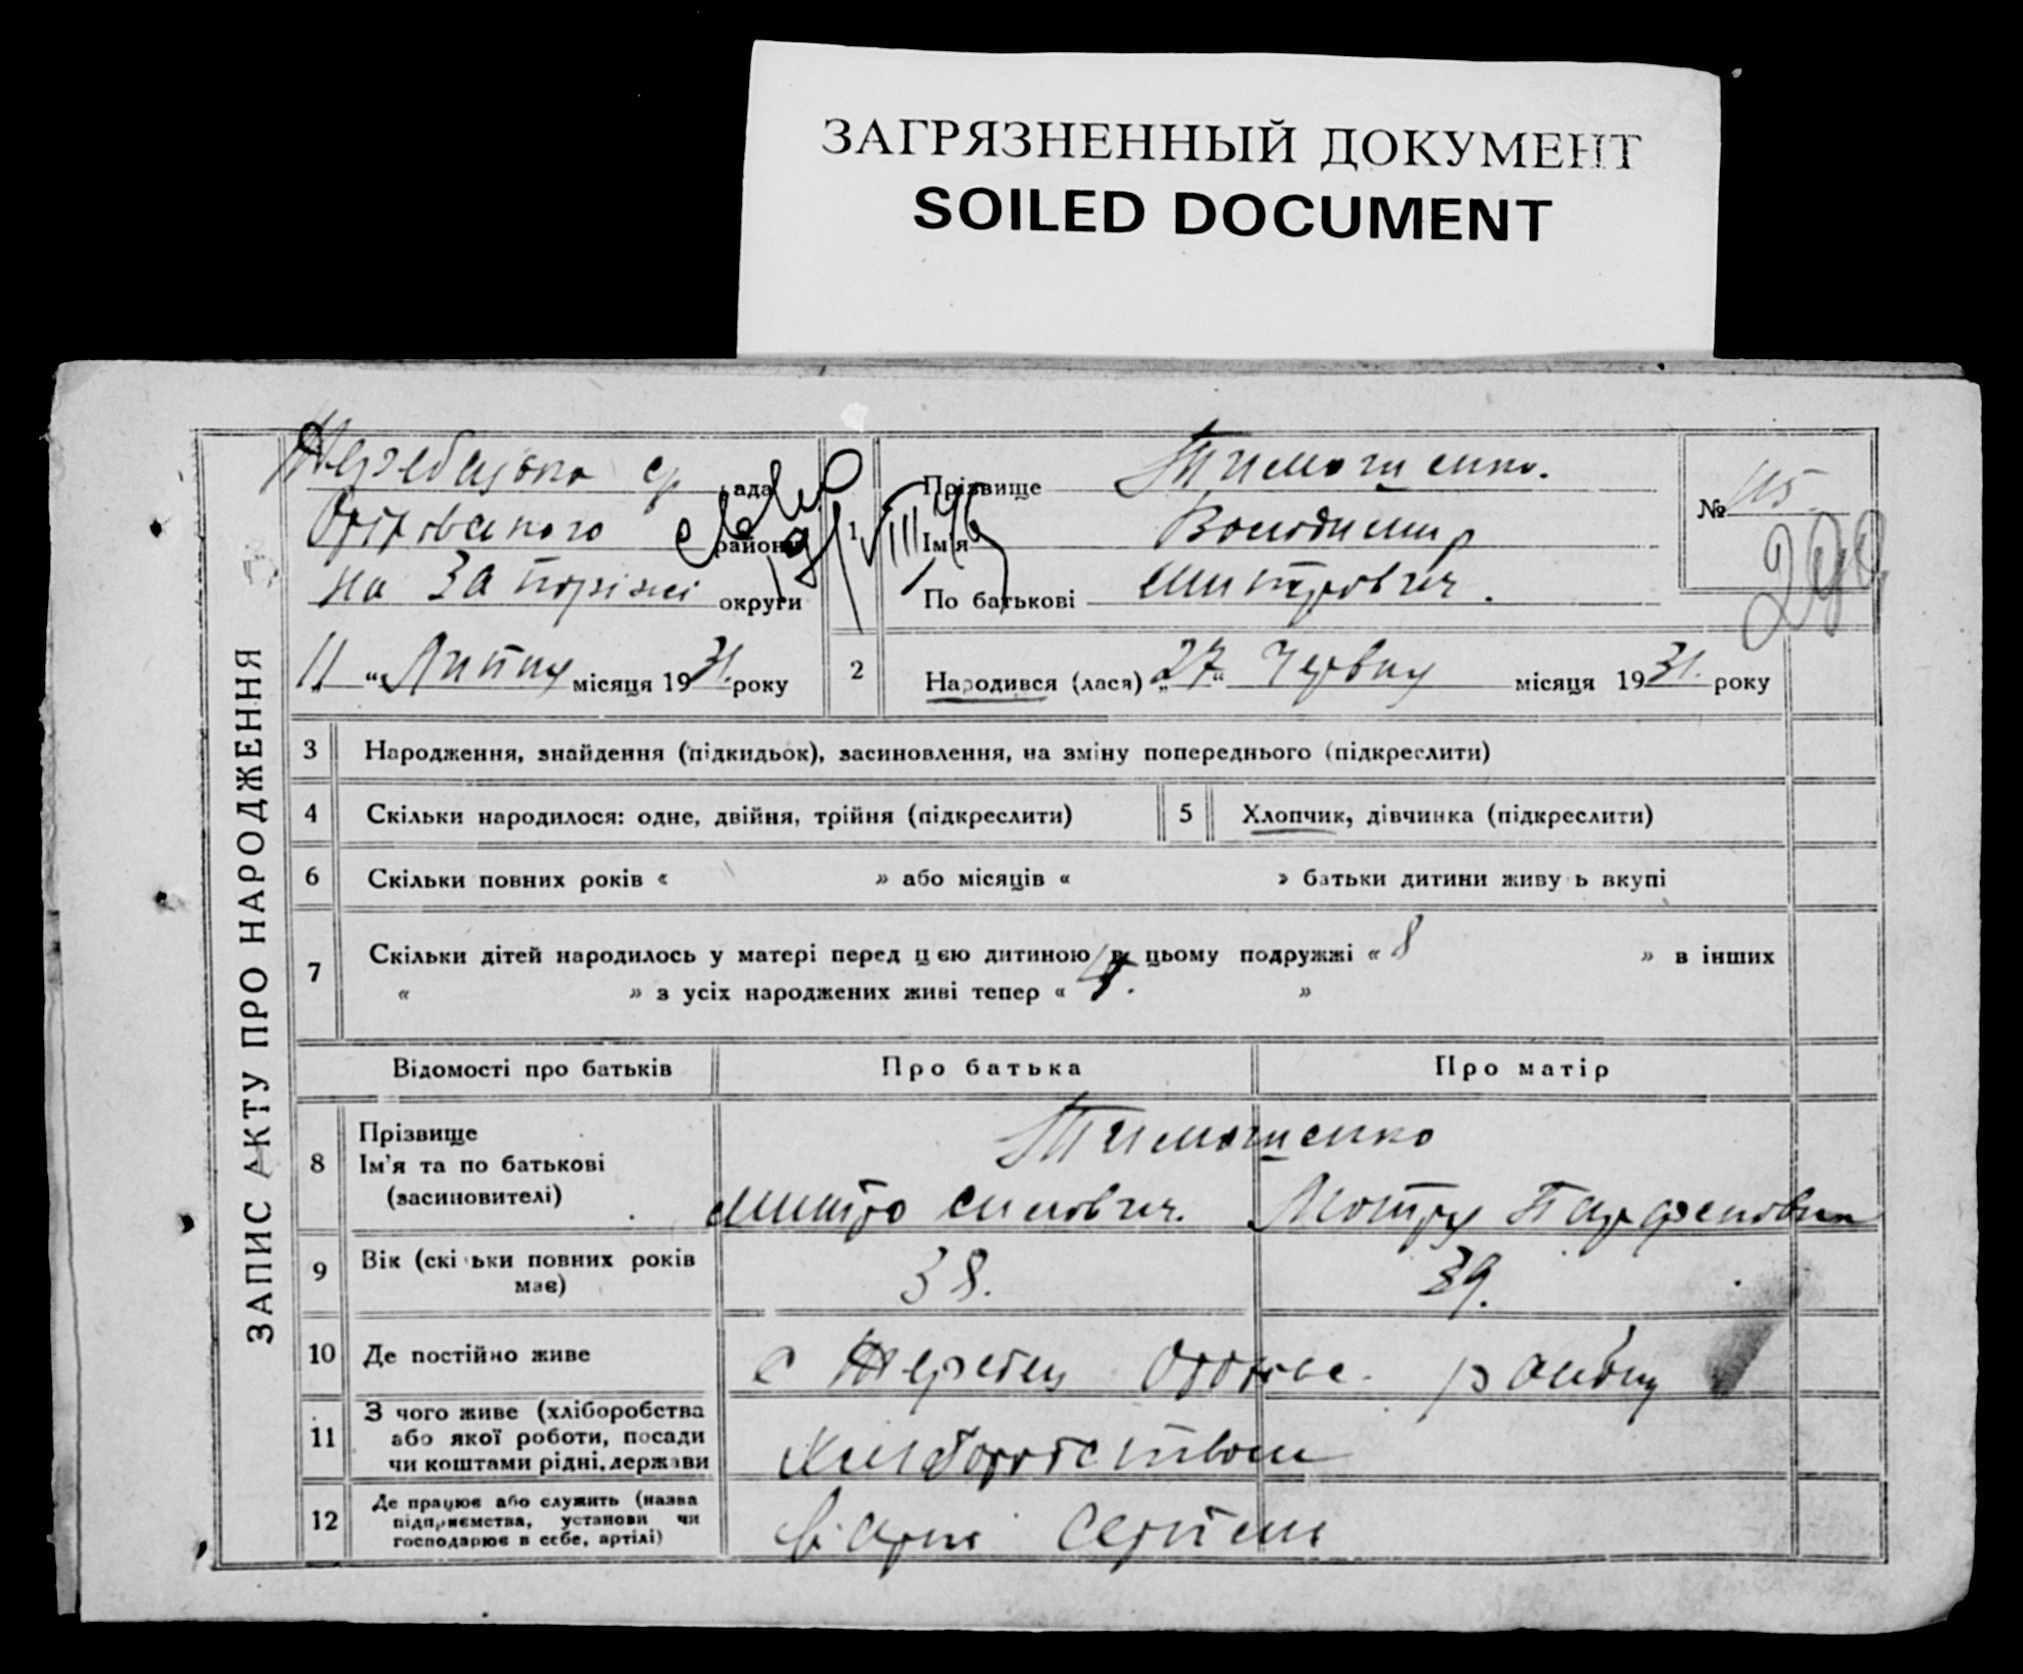 ЗАГРЯЗНЕННЫЙ ДОКУМЕНТ
SOILED DOCUMENT
ЗАПИС АКТУ ПРО НАРОДЖЕННЯ
рада
района
на Запоріжі округи
„11“ Липня місяця 1931 року
1
Прізвище Тимошенко.
Ім'я Володимир
По батькові Митрович.
№ 115
2 Народився (лася) „27“ Червня місяця 1931. року
3 Народження, знайдення (підкидьок), засиновлення, на зміну попереднього (підкреслити)
4 Скільки народилося: одне, двійня, трійня (підкреслити)
5 Хлопчик, дівчинка (підкреслити)
6 Скільки повних років « » або місяців « » батьки дитини живуть вкупі
7 Скільки дітей народилось у матері перед цією дитиною в цьому подружжі « 8 » в інших
« » з усіх народжених живі тепер « 4. »
Відомості про батьків Про батька Про матір
8 Прізвище
Ім'я та по батькові
(засиновителі)
Тимошенко
Митро Силович. Мотря Парфеновна
9 Вік (скільки повних років
має)
38. 39.
10 Де постійно живе
с Жеребец району
11 З чого живе (хліборобства
або якої роботи, посади
чи коштами рідні, держави
Хліборобством
12 Де працює або служить (назва
підприємства, установи чи
господарює в себе, артілі)